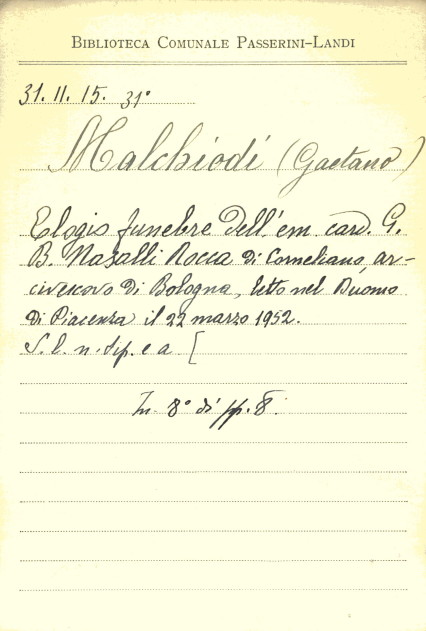 BIBLIOTECA COMUNALE PASSERINI-LANDI
31. II. 15. 31°
Malchiodi (Gaetano)
Elogio funebre dell'em. card. G.
B. Nasalli Rocca di Corneliano, ar-
civescovo di Bologna, letto nel Duomo
di Piacenza il 22 marzo 1952.
S. l. n. tip. e a [
In- 8° di pp. 8.